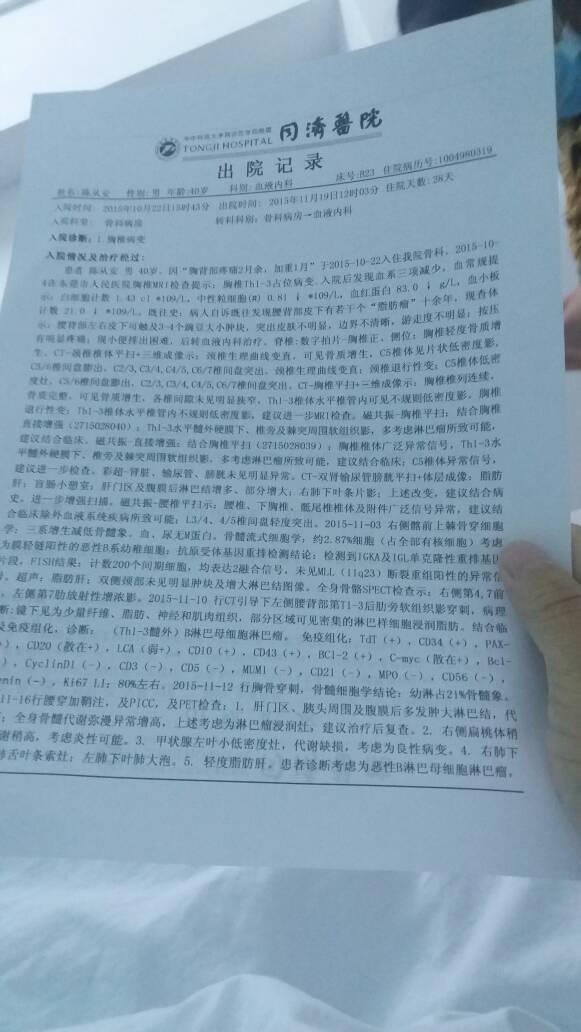 华中科技大学同济医学院附属
TONGJI HOSPITAL 同濟醫院
出院记录
姓名:陈从安 性别:男 年龄:40岁 科别:血液内科 床号:B23 住院病历号:1004980319
入院时间: 2015年10月22日15时43分 出院时间: 2015年11月19日12时03分 住院天数:28天
入院科室: 骨科病房 转科科别:骨科病房→血液内科
入院诊断:1.胸椎病变
入院情况及治疗经过:
患者 陈从安 男 40岁,因“胸背部疼痛2月余,加重1月”于2015-10-22入住我院骨科。2015-10-
4在东莞市人民医院胸椎MRI检查提示:胸椎Th1-3占位病变。入院后发现血系三项减少,血常规提
示:白细胞计数 1.43 cl *109/L,中性粒细胞(#) 0.81 ↓ *109/L,血红蛋白 83.0 ↓ g/L,血小板
计数 21.0 ↓ *109/L。既往史:病人自诉既往发现腰背部皮下有若干个“脂肪瘤”十余年,现查体
示:腰背部左右皮下可触及3-4个豌豆大小肿块,突出皮肤不明显,边界不清晰,游走度不明显;按压
有明显疼痛;现小便排出困难。后转血液内科治疗。脊椎:数字拍片-胸椎正、侧位:胸椎轻度骨质增
生。CT-颈椎椎体平扫+三维成像示:颈椎生理曲线变直,可见骨质增生,C5椎体见片状低密度影,
C5/6椎间盘膨出,C2/3,C3/4,C4/5,C6/7椎间盘突出。颈椎生理曲线变直;颈椎退行性变;C5椎体低密
度灶,C5/6椎间盘膨出,C2/3,C3/4,C4/5,C6/7椎间盘突出。CT-胸椎平扫+三维成像示:胸椎椎列连续,
骨质完整,可见骨质增生,各椎间隙未见明显狭窄,Th1-3椎体水平椎管内可见不规则低密度影。胸椎
退行性变;Th1-3椎体水平椎管内不规则低密度影,建议进一步MRI检查。磁共振-胸椎平扫:结合胸椎
直接增强(2715028040):Th1-3水平髓外硬膜下、椎旁及棘突周围软组织影,多考虑淋巴瘤所致可能,
建议结合临床。磁共振-直接增强:结合胸椎平扫(2715028039):胸椎椎体广泛异常信号,Th1-3水
平髓外硬膜下、椎旁及棘突周围软组织影,多考虑淋巴瘤所致可能,建议结合临床;C5椎体异常信号,
建议进一步检查。彩超-肾脏、输尿管、膀胱未见明显异常。CT-双肾输尿管膀胱平扫+体层成像:脂肪
肝;盲肠小憩室;肝门区及腹膜后淋巴结增多、部分增大;右肺下叶条片影;上述改变,建议结合病
史,进一步增强扫描。磁共振-腰椎平扫示:腰椎、下胸椎、骶尾椎椎体及附件广泛信号异常,建议结
合临床除外血液系统疾病所致可能;L3/4、4/5椎间盘轻度突出。2015-11-03 右侧髂前上棘骨穿细胞
学:三系增生减低骨髓象。血、尿无M蛋白。骨髓流式细胞学:约2.87%细胞(占全部有核细胞)考虑
为膜轻链阳性的恶性B系幼稚细胞;抗原受体基因重排检测结论:检测到IGKA及IGL单克隆性重排基因
片段。FISH结果:计数200个间期细胞,均表达2融合信号,未见MLL(11q23)断裂重组阳性的异常信
号。超声:脂肪肝;双侧颈部未见明显肿块及增大淋巴结图像。全身骨骼SPECT检查示:右侧第4,7前
、左侧第7肋放射性增浓影。2015-11-10 行CT引导下左侧腰背部第T1-3后肋旁软组织影穿刺,病理
断:镜下见为少量纤维、脂肪、神经和肌肉组织,部分区域可见密集的淋巴样细胞浸润脂肪。结合临
及免疫组化,诊断:(Th1-3髓外)B淋巴母细胞淋巴瘤。 免疫组化:TdT(+),CD34(+),PAX-
),CD20(散在+),LCA(弱+),CD10(+),CD43(+),BCL-2(+),C-myc(散在+),Bcl-
),CyclinD1(-),CD3(-),CD5(-),MUM1(-),CD21(-),MPO(-),CD56(-),
enin(-),Ki67 LI:80%左右。2015-11-12 行胸骨穿刺,骨髓细胞学结论:幼淋占21%骨髓象。
11-16行腰穿加鞘注,及PICC,及PET检查:1. 肝门区、胰头周围及腹膜后多发肿大淋巴结,代
;全身骨髓代谢弥漫异常增高,上述考虑为淋巴瘤浸润灶,建议治疗后复查。2. 右侧扁桃体稍
谢稍高,考虑炎性可能。3. 甲状腺左叶小低密度灶,代谢缺损,考虑为良性病变。4. 右肺下
肺舌叶条索灶;左肺下叶肺大泡。5. 轻度脂肪肝。患者诊断考虑为恶性B淋巴母细胞淋巴瘤。